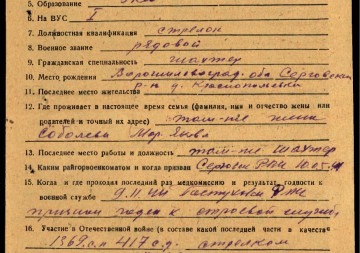 5. Образование
6. На ВУС I
7. Должностная квалификация стрелок
8. Военное звание рядовой
9. Гражданская специальность шахтер
10. Место рождения Ворошиловград. обл. Серговский
11. Последнее место жительства р-н д. Краснополевка
12. Где проживает в настоящее время семья (фамилия, имя и отчество жены или
родителей и точный их адрес) там-же жена
Соболева Мар.
13. Последнее место работы и должность там-же шахтер
14. Каким райгорвоенкоматом и когда призван Серговск РВК 10.05.41
15. Когда и где проходил последний раз медкомиссию и результат годности к
военной службе 9.II. РВК
признан годен к строевой службе
16. Участие в Отечественной войне (в составе какой последней части и в качестве
1369 с.п 417 с.д. - стрелком